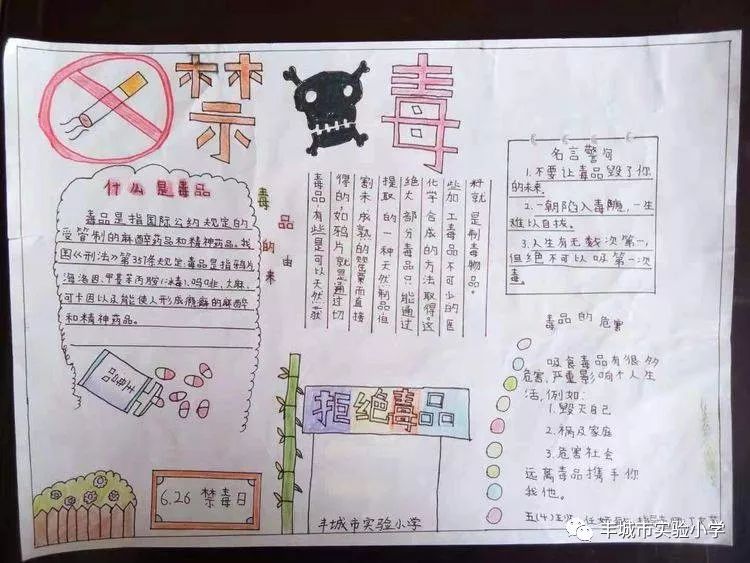 禁毒
什么是毒品
毒品是指国际公约规定的
受管制的麻醉药品和精神药品。我
国《刑法》第357条规定:毒品是指鸦片
海洛因、甲基苯丙胺(冰毒)、吗啡、大麻、
可卡因以及能使人形成瘾癖的麻醉
和精神药品。
毒品的由来
毒品有些是可以天然获
得的,如鸦片就是通过切
割未成熟的罂粟而直接
提取的一种天然制品但
绝大部分毒品只能通过
化学合成的方法取得。这
些加工毒品不可少的医
料就是制毒物品。
名言警句
1.不要让毒品毁了你
的未来.
2.一朝陷入毒雕,一生
难以自拔。
3.人生有无数次第一,
但绝不可以吸第一次
毒。
毒品的危害
吸食毒品有很多
危害,严重影响个人生
活,例如:
1.毁灭自己
2.祸及家庭
3.危害社会
远离毒品携手你
我他。
拒绝毒品
丰城市实验小学
6.26 禁毒日
五(4)
丰城市实验小学